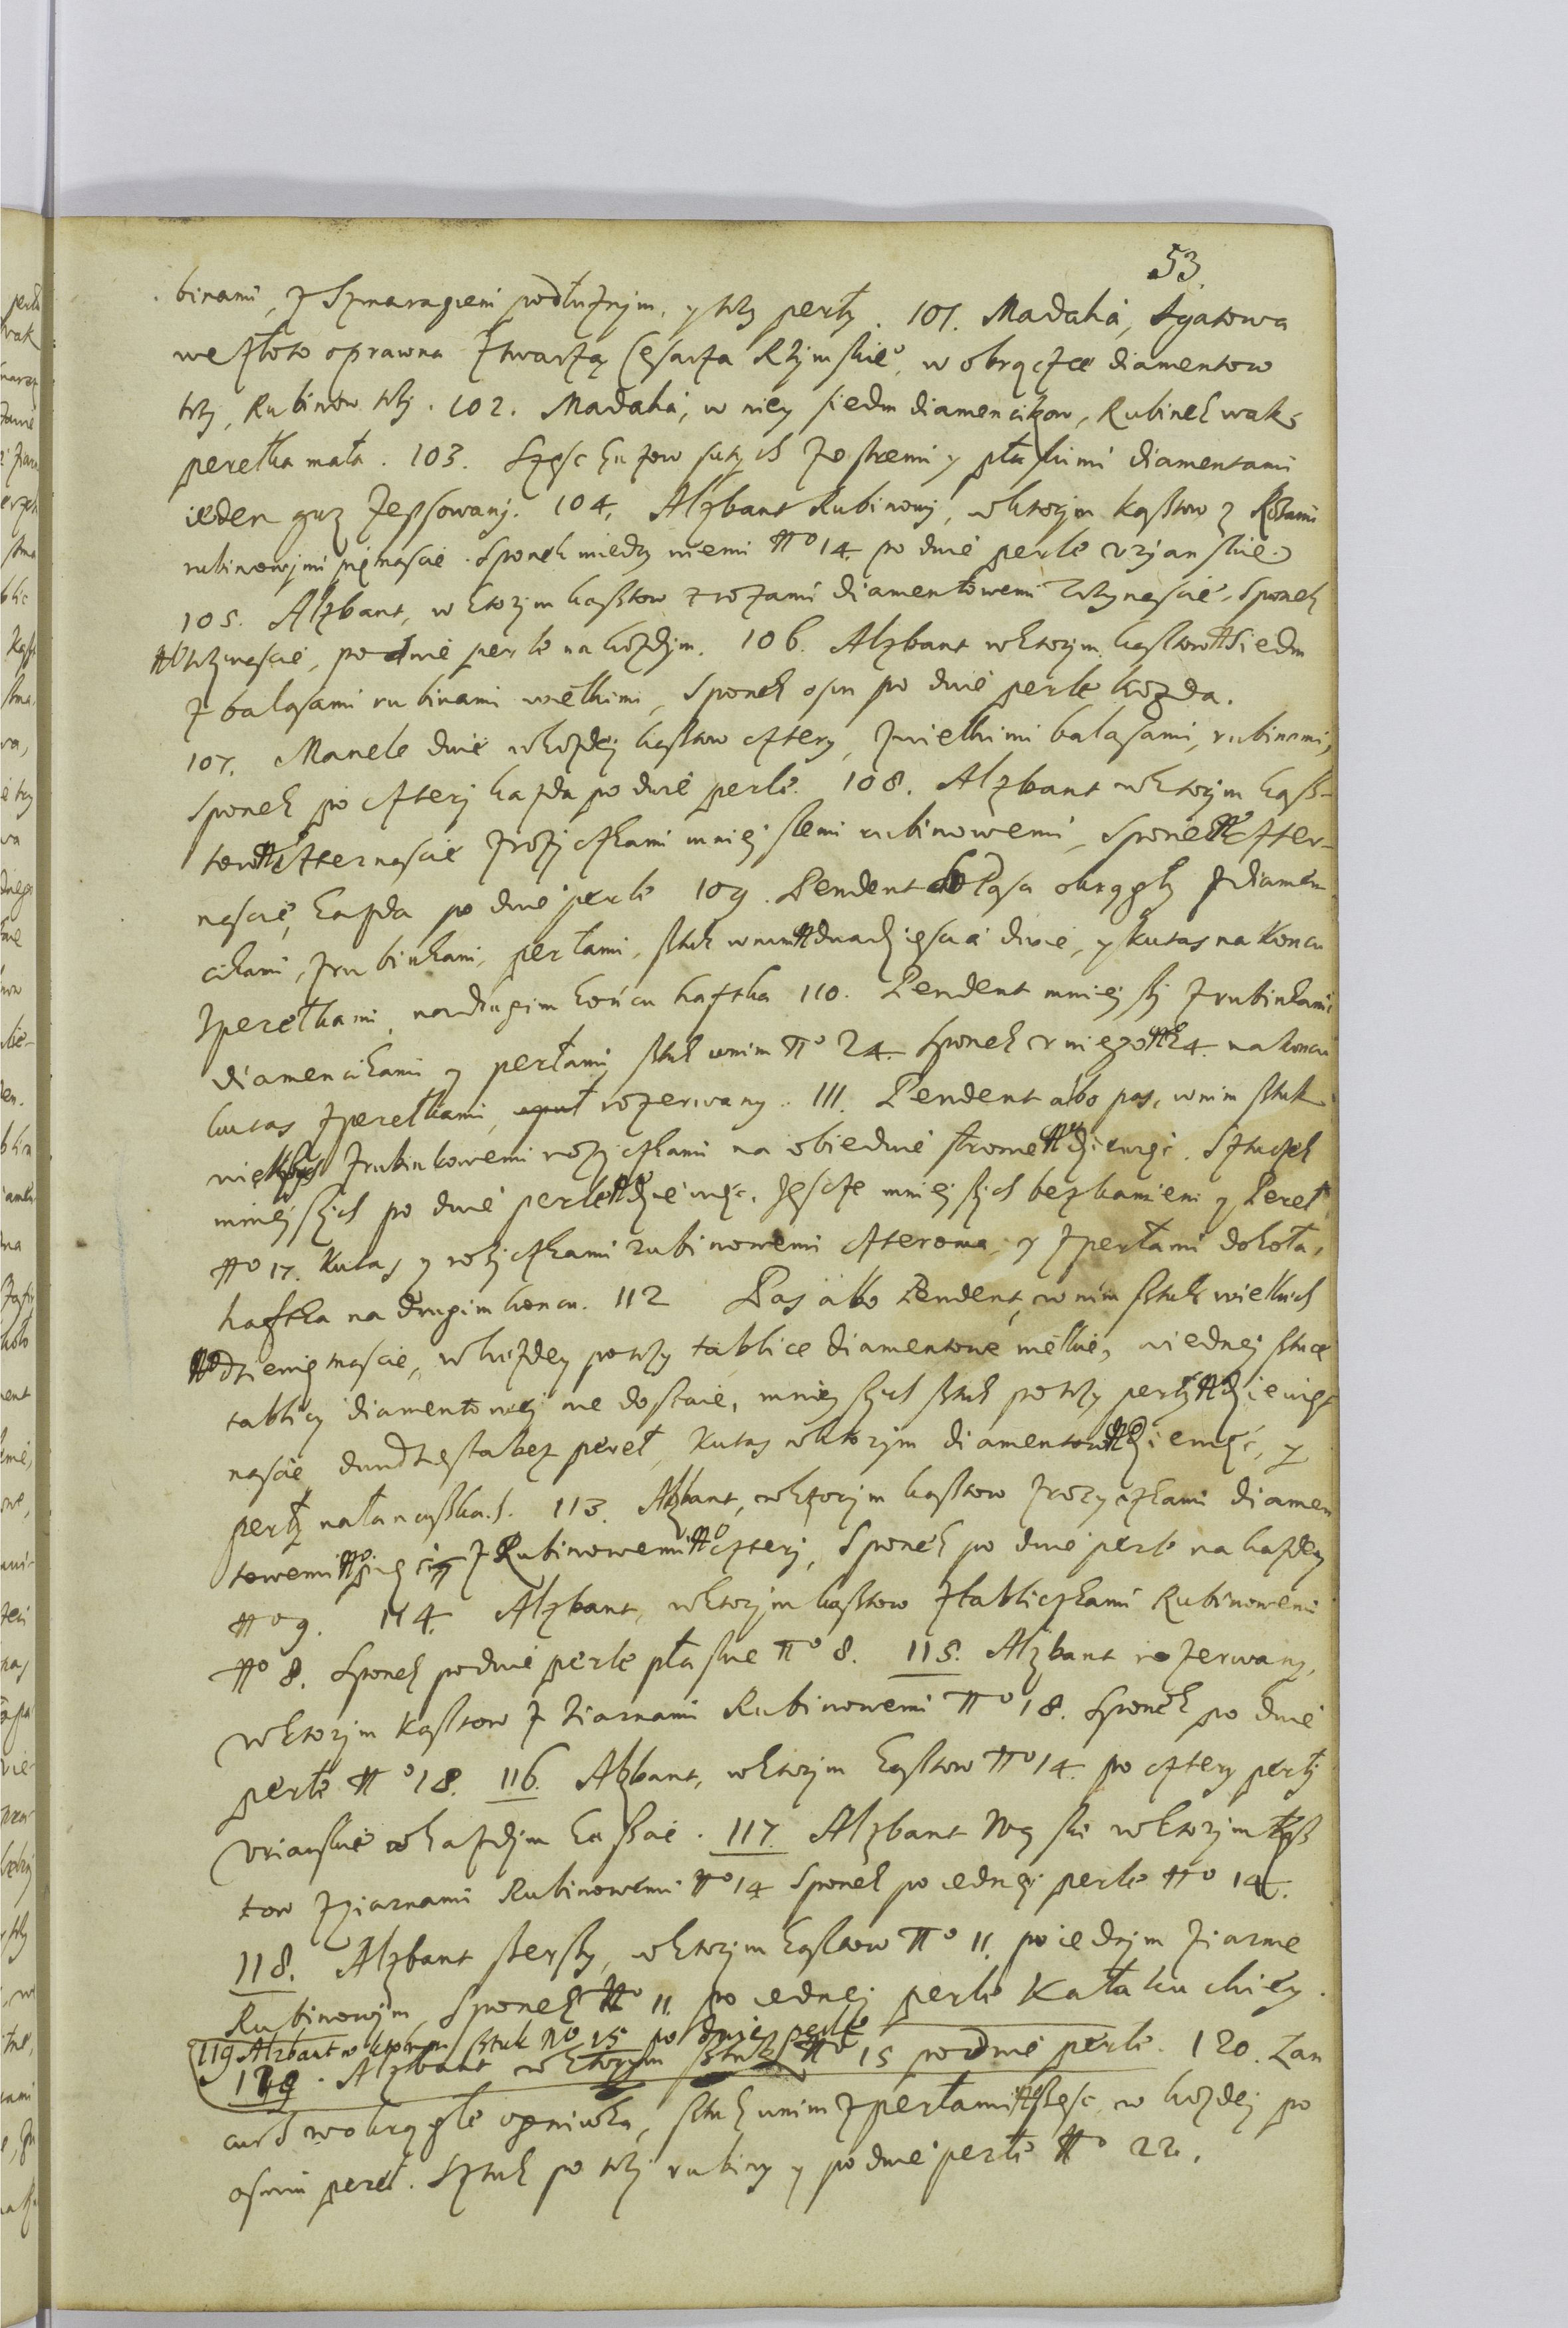 53.
binami, z Szmaragiem podłużnym, y trzy perły. 101. Madaha, Agatowa
we złoto oprawna z twarzą Cesarza Rzymskie°, w obrączce diamentow
trzy, Rubinow trzy. 102. Madaha, w niey siedm diamencikow, Rubinek wak,
peretka mała. 103. Szesc guzow sutych z ostremi y płaskimi diamentami
ieden guz zepsowany. 104. Alzbant Rubinowy, w ktorym kasztow z Rożami
rubinowymi piętnascie. Sponek miedzy niemi No 14. po dwie perle uriańskie.
105. Alzbant, w ktorym kasztow z rożami diamentowemi trzynascie, Sponek
No trzynascie, po dwie perle na kożdym. 106. Alzbant w ktorym kasztow No siedm
z balasami rubinami wielkimi, Sponek osm po dwie perle kożda.
107. Manele dwie w kożdej kasztow cztery, z wielkimi balasami, rubinami,
Sponek po cztery każda po dwie perle. 108. Alzbant w ktorym kasz-
tow No czternascie z rożyczkami mnieyszemi rubinowemi, Sponek No czter-
nascie, każda po dwie perle 109. Pendent do Pasa okrągły z diamen
cikami, z rubinkami, perłami, sztuk w nim No dwadziescia dwie, y kutas na koncu
z peretkami, na drugim końcu haftka 110. Pendent mnieyszy z rubinkami
diamencikami y perłami, sztuk w nim No 24. Sponek u niego No 24. na koncu
kutas z peretkami, rozerwany. 111. Pendent albo pas, w nim sztuk
większych z rubinkowemi rożyczkami na obiedwie stronie No dziewięć. Sztuczek
mnieyszych po dwie perle No dziewięc. Jescze mnieyszych bez kamieni y Pereł
No 17. Kutas z rożyczkami rubinowemi czteroma, y z perłami dokoła,
haftka na drugim koncu. 112 Pas albo Pendent, w nim sztuk wielkich
No dziewiętnascie, w kożdey po trzy tablice diamentowe wielkie, w iedney sztuce
tablicy diamentowej nie dostaie, mnieyszych sztuk po trzy perły No dziewięt
nascie dwudziesta bez pereł, Kutas w ktorym diamentow No dziewięć, y
perły na łancuszkach. 113. Alzbant, w ktorym kasztow z rożyczkami diamen
towemi No pięć z Rubinowemi No cztery, Sponek po dwie perle na każdey
No 9. 114. Alzbant, w ktorym kasztow z tabliczkami Rubinowemi
No 8. Sponek po dwie perle płaskie No 8. 115. Alzbant rozerwany,
w ktorym kasztow z ziarnami Rubinowemi No 18. Sponek po dwie
perle No 18. 116. Alzbant, w ktorym kasztow No 14. po cztery perły
Uriańskie w każdym kaszcie. 117. Alzbant Wąski w ktorym kasz
tow z ziarnami Rubinowemi No 14 Sponek po iedney perle No 14.
118. Alzbant szerszy, w ktorym kasztow No 11. po iednym ziarnie
Rubinowym, Sponek No 11. po iedney perle Kałakuckiey.
119 Alzbant w ktorym sztuk No 15 po dwie perle
119. Alzbant w ktorym sztuk No 15 po dwie perle. 120. Łan
cuch w okrągłe ogniwka, sztuk w nim z perłami No szesc, w kożdej po
osmi pereł. Sztuk po trzy rubiny y po dwie perle No 22.